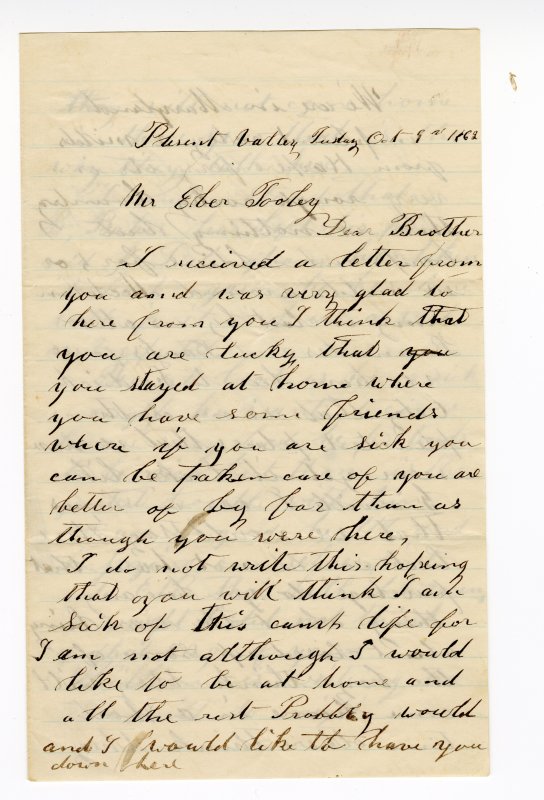 Plesent Valley Tusday Oct 9th 1862
Mr Eber Tooley
Dear Brother
I received a letter from
you annd was very glad to
here from you I think that
you are lucky that you
you stayed at home where
you have some friends
where if you are sick you
can be taken care of you are
better of by far than as
though you were here,
I do not write this hoping
that you will think I am
sick of this camp life for
I am not allthough I would
like to be at home and
all the rest Probbly would
and I would like to have you
down here